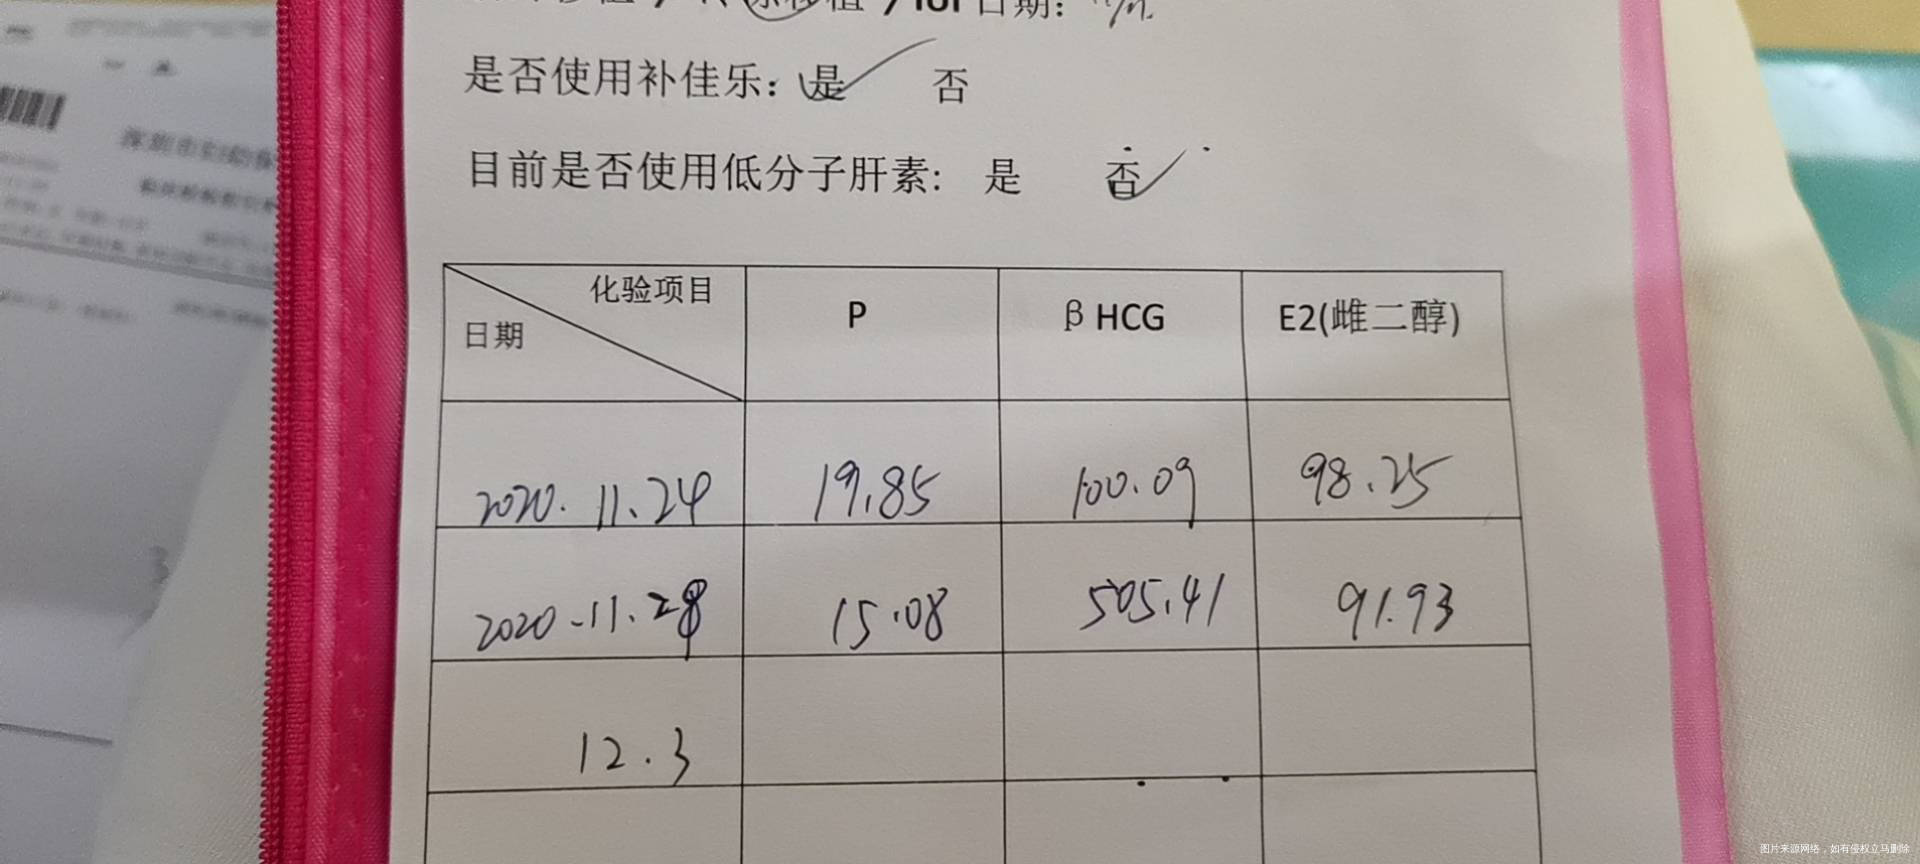 /IUI日期:
是否使用补佳乐: 是 否
目前是否使用低分子肝素: 是 否
化验项目
日期
P
β HCG
E2(雌二醇)
2020.11.24 19.85 100.09 98.25
2020.11.28 15.08 505.41 91.93
12.3
图片来源网络，如有侵权立马删除